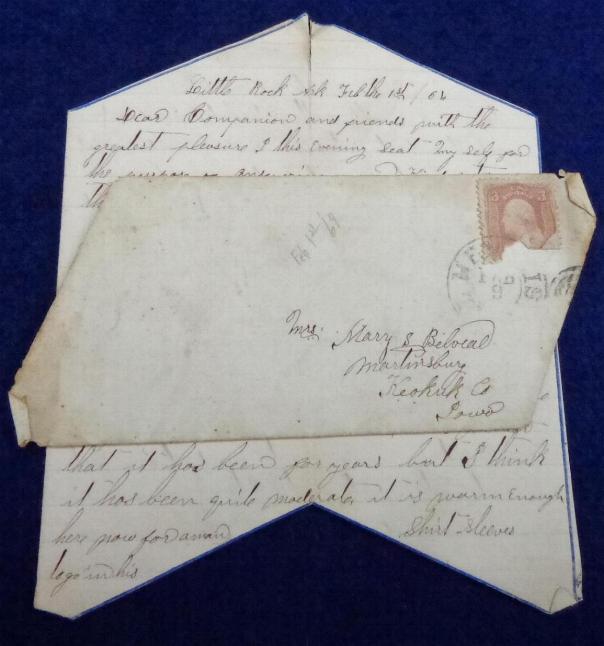 Little Rock Ark Feb the 1st / 64
Dear Companion and friends with the
greatest pleasure I this Evening Seat my self for
the purpose
Feb 1st/64
3 3
Mrs. Mary S Belveal
Martinsburg
Keokuk Co
Iowa
that it has been for years but I think
it has been quite moderate, it is warm Enough
here now for a man Shirt Sleeves
to go in his